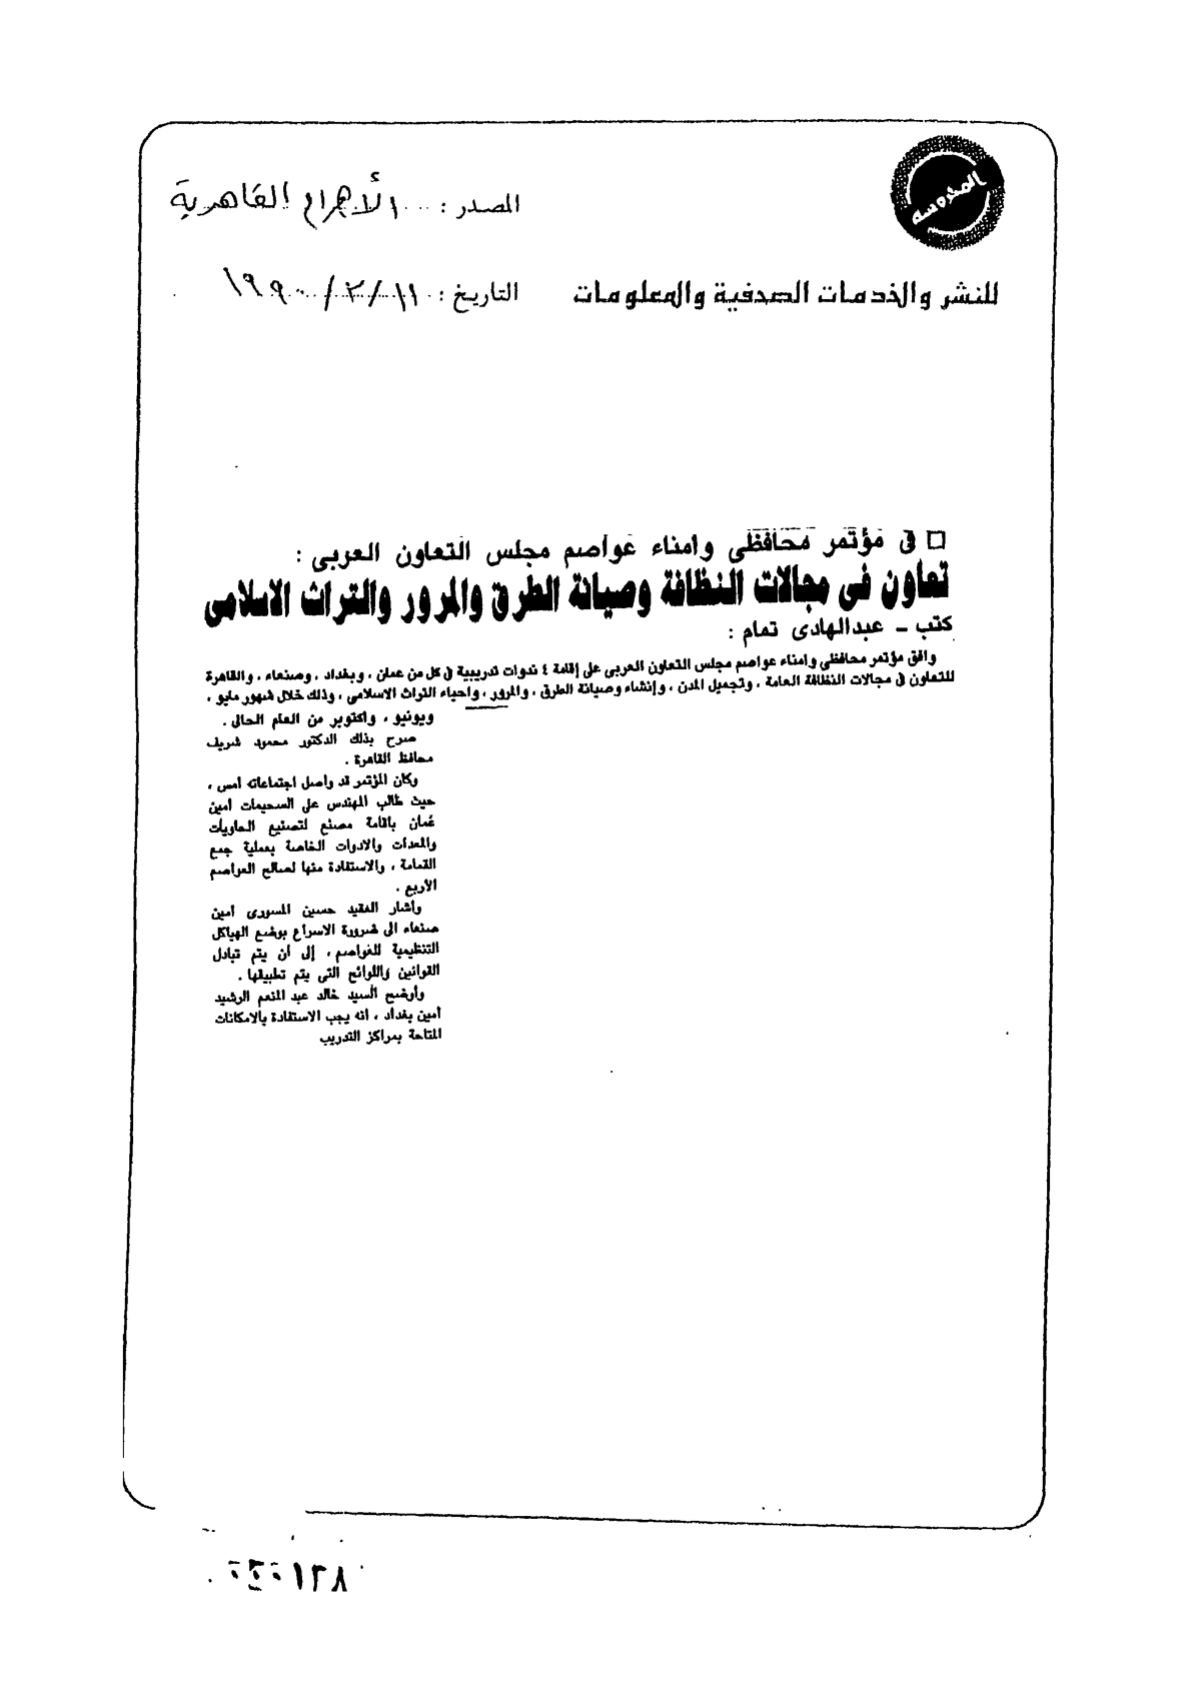 المحروسة
المصدر : الأهرام القاهرية
للنشر والخدمات الصحفية والمعلومات
التاريخ : ١١/٢/١٩٩٠
□ فى مؤتمر محافظى وامناء عواصم مجلس التعاون العربى :
تعاون فى مجالات النظافة وصيانة الطرق والمرور والتراث الاسلامى
كتب ـ عبدالهادى تمام :
وافق مؤتمر محافظى وامناء عواصم مجلس التعاون العربى على إقامة ٤ ندوات تدريبية فى كل من عمان ، وبغداد ، وصنعاء ، والقاهرة
للتعاون فى مجالات النظافة العامة ، وتجميل المدن ، وإنشاء وصيانة الطرق ، والمرور ، واحياء التراث الاسلامى ، وذلك خلال شهور مايو ،
ويونيو ، واكتوبر من العام الحالى .
صرح بذلك الدكتور محمود شريف
محافظ القاهرة .
وكان المؤتمر قد واصل اجتماعاته امس ،
حيث طالب المهندس على السحيمات أمين
عمان باقامة مصنع لتصنيع الحاويات
والمعدات والادوات الخاصة بعملية جمع
القمامة ، والاستفادة منها لصالح العواصم
الأربع .
وأشار العقيد حسين المسورى أمين
صنعاء الى ضرورة الاسراع بوضع الهياكل
التنظيمية للعواصم ، إلى أن يتم تبادل
القوانين واللوائح التى يتم تطبيقها .
وأوضح السيد خالد عبد المنعم الرشيد
أمين بغداد ، انه يجب الاستفادة بالامكانات
المتاحة بمراكز التدريب